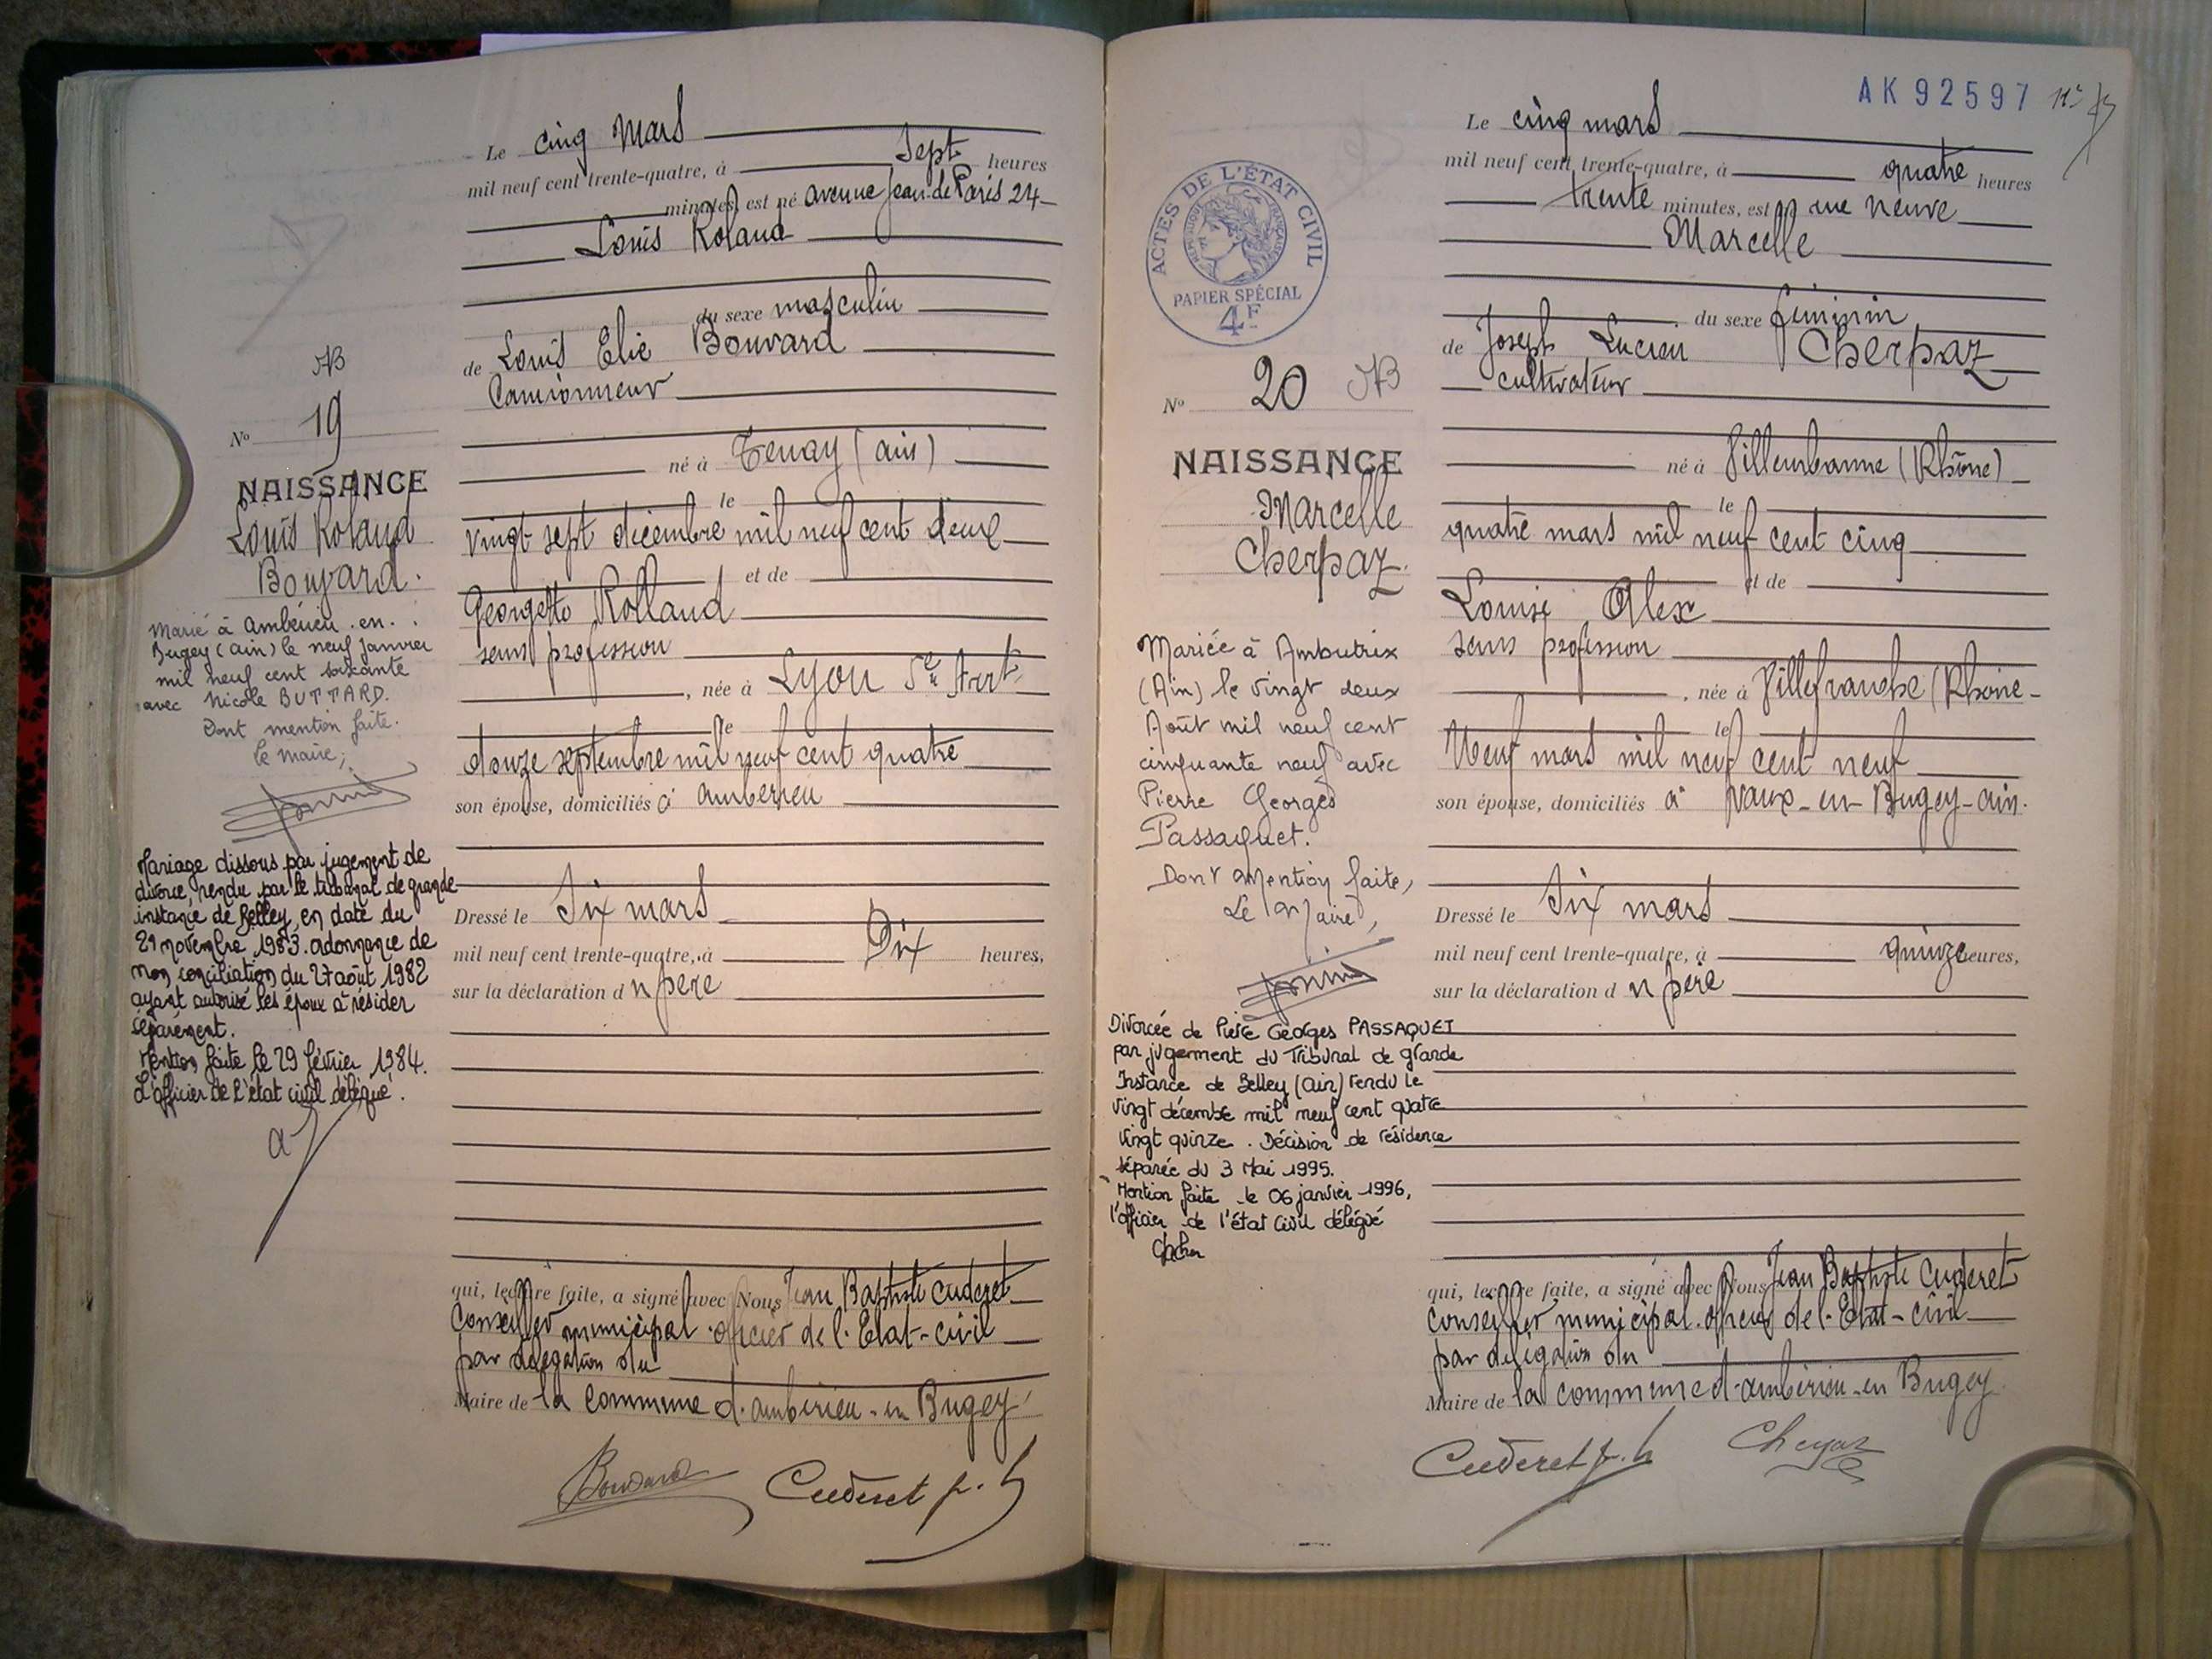 Le cinq Mars
mil neuf cent trente-quatre, à Sept heures
minutes, est né avenue Jean de Paris 24
Louis Roland
du sexe masculin
de Louis Elie Bouvard
Camionneur
né à Tenay (ain)
le
vingt sept décembre mil neuf cent deux
et de
Georgette Rolland
sans profession
, née à Lyon 5e Arrt
le
douze septembre mil neuf cent quatre
son épouse, domiciliés à ambérieu
Dressé le Six mars
mil neuf cent trente-quatre, à Dix heures,
sur la déclaration du père
qui, lecture faite, a signé avec Nous Jean Baptiste Cuderet
Conseiller municipal officier de l'Etat-civil
par délégation du
Maire de la commune d'ambérieu-en Bugey
Bouvard Cuderet
NB
No 19
NAISSANCE
Louis Roland
Bouvard.
Marié à Ambérieu-en-
Bugey (Ain) le neuf Janvier
mil neuf cent soixante
avec Nicole BUTTARD.
Dont mention faite.
Le maire,
Mariage dissous par jugement de
divorce, rendu par le tribunal de grande
instance de Belley, en date du
29 novembre 1983. ordonnance de
non conciliation du 27 août 1982
ayant autorisé les époux à résider
séparément.
Mention faite le 29 février 1984.
L'officier de l'état civil délégué.
AK92597
Le cinq mars
mil neuf cent trente-quatre, à quatre heures
trente minutes, est né rue neuve
Marcelle
du sexe féminin
de Joseph Lucien Cherpaz
cultivateur
né à Villeurbanne (Rhône)
le
quatre mars mil neuf cent cinq
et de
Louise Alex
sans profession
, née à Villefranche (Rhône-
le
Neuf mars mil neuf cent neuf
son épouse, domiciliés à Vaux-en-Bugey-ain.
Dressé le Six mars
mil neuf cent trente-quatre, à quinze heures,
sur la déclaration du père
qui, lecture faite, a signé avec Nous Jean Baptiste Cuderet
Conseiller municipal officier de l'Etat-civil
par délégation du
Maire de la commune d'ambérieu-en Bugey
Cuderet
ACTES DE L'ÉTAT CIVIL
RÉPUBLIQUE FRANÇAISE
PAPIER SPÉCIAL
4F
No 20 NB
NAISSANCE
Marcelle
Cherpaz.
Mariée à Ambutrix
(Ain) le vingt deux
Août mil neuf cent
cinquante neuf avec
Pierre Georges
Passaquet.
Dont Mention faite,
Le Maire,
Divorcée de Pierre Georges PASSAQUET
par jugement du Tribunal de Grande
Instance de Belley (Ain) rendu le
vingt décembre mil neuf cent quatre
vingt quinze. Décision de résidence
séparée du 3 Mai 1995.
Mention faite le 06 janvier 1996,
l'officier de l'état civil délégué